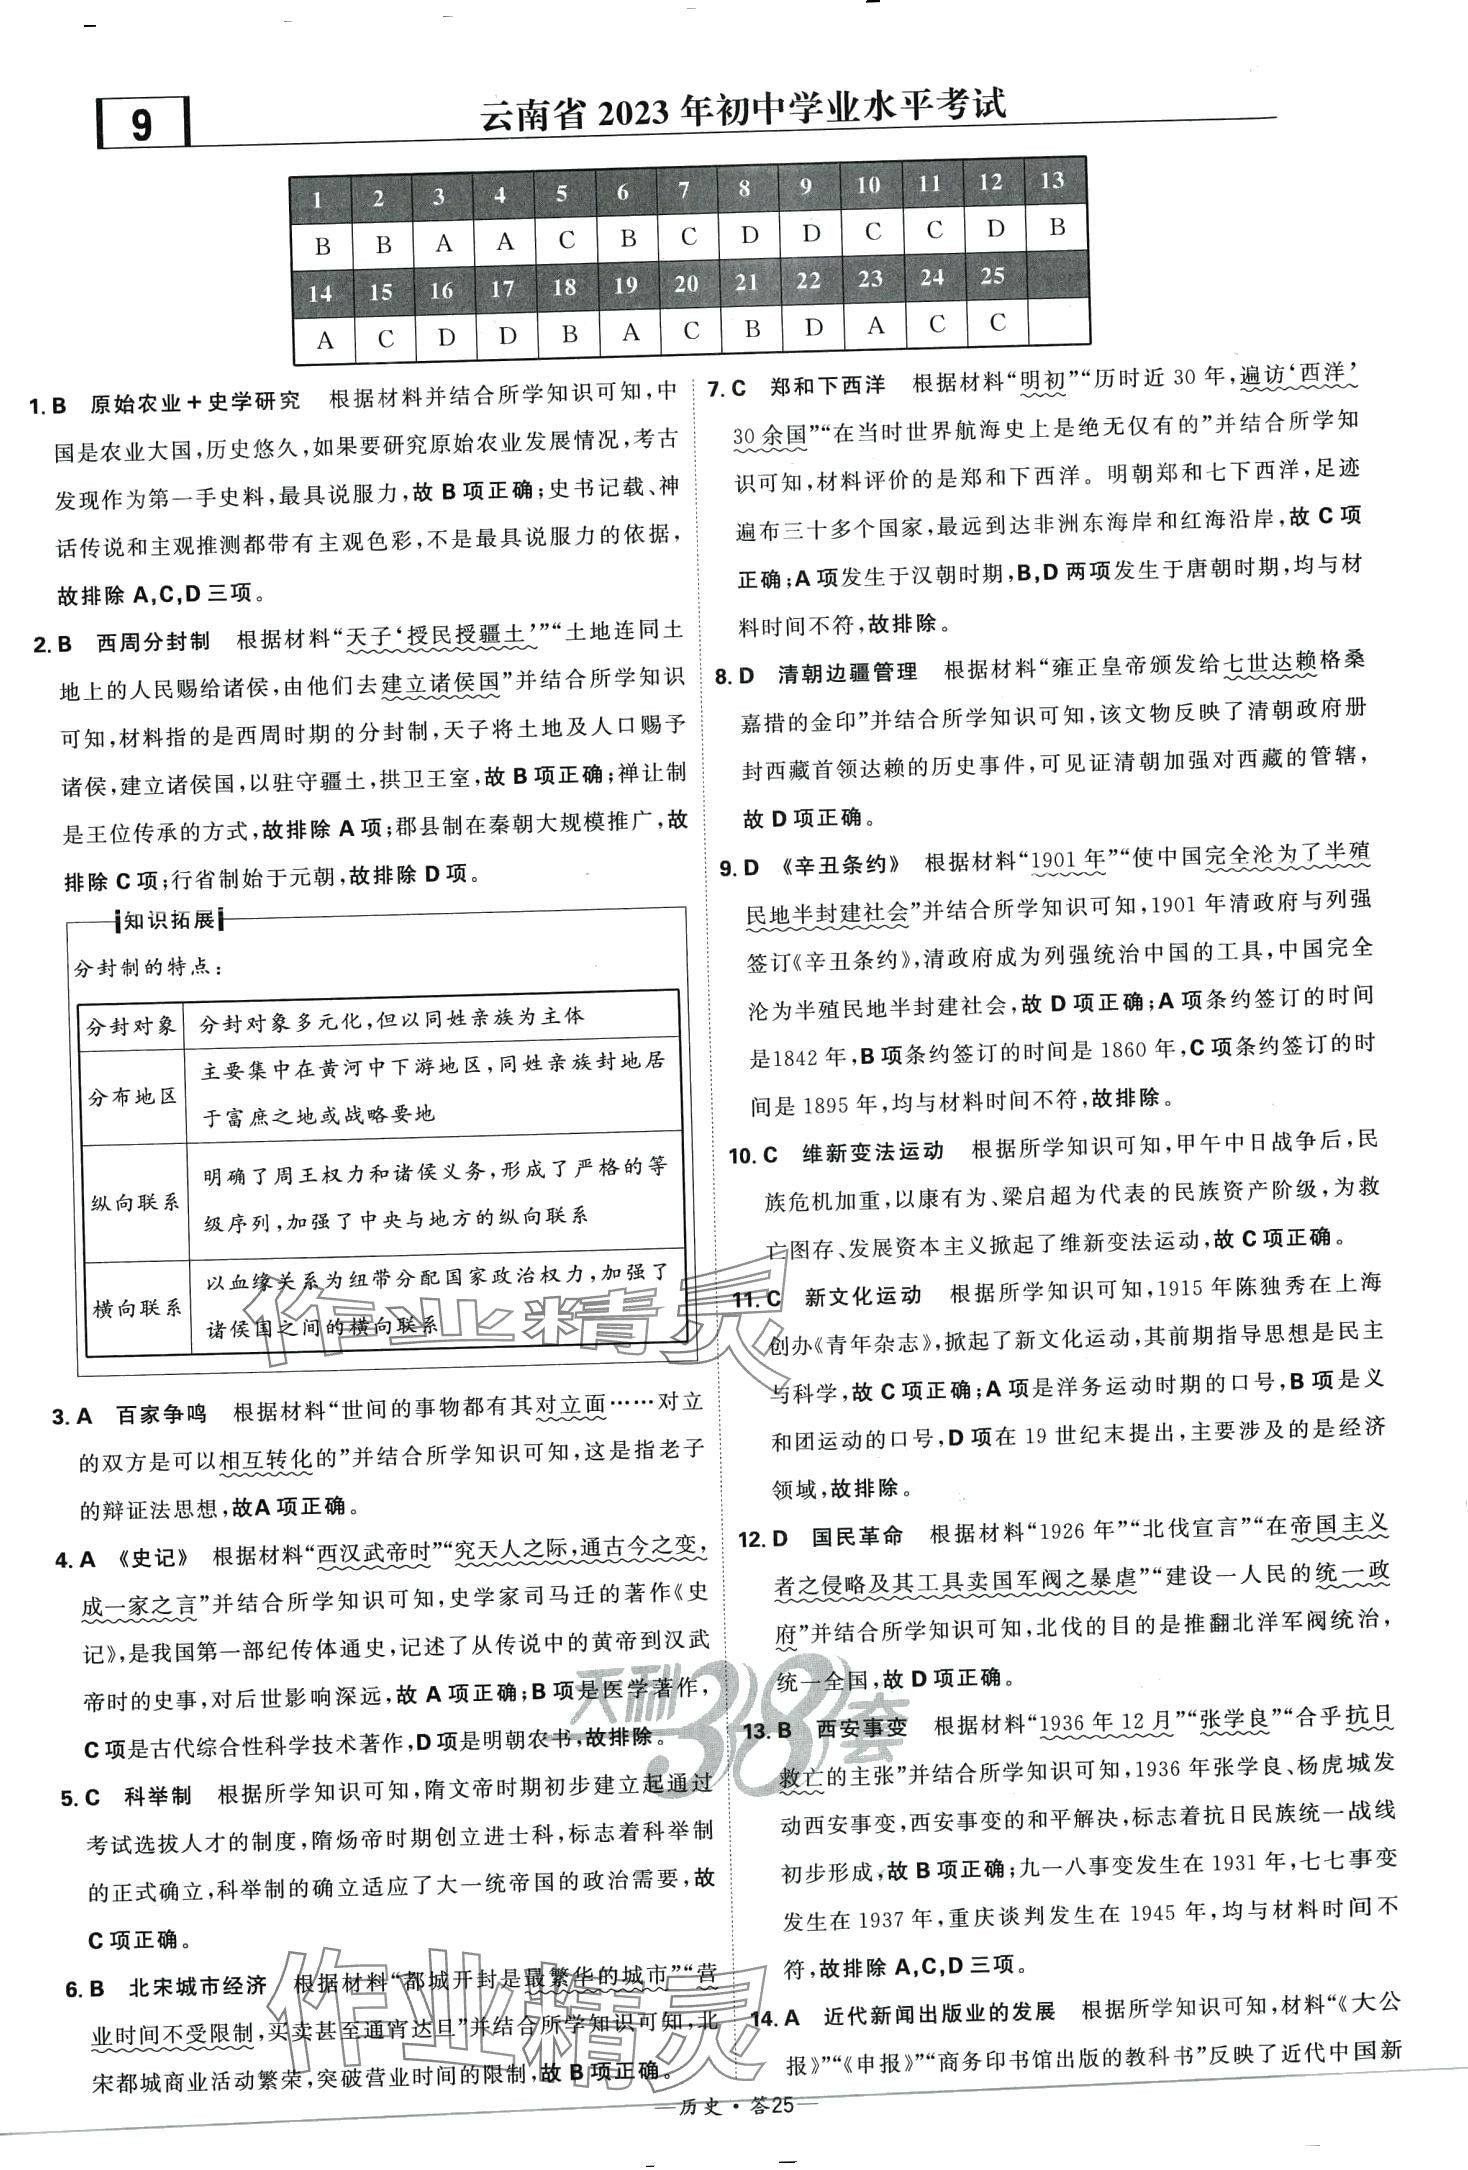 9
云南省 2023 年初中学业水平考试
1 2 3 4 5 6 7 8 9 10 11 12 13
B B A A C B C D D C C D B
14 15 16 17 18 19 20 21 22 23 24 25
A C D D B A C B D A C C
1. B 原始农业＋史学研究 根据材料并结合所学知识可知,中
国是农业大国,历史悠久,如果要研究原始农业发展情况,考古
发现作为第一手史料,最具说服力,故 B 项正确;史书记载、神
话传说和主观推测都带有主观色彩,不是最具说服力的依据,
故排除 A,C,D 三项。
2. B 西周分封制 根据材料“天子‘授民授疆土’”“土地连同土
地上的人民赐给诸侯,由他们去建立诸侯国”并结合所学知识
可知,材料指的是西周时期的分封制,天子将土地及人口赐予
诸侯,建立诸侯国,以驻守疆土,拱卫王室,故 B 项正确;禅让制
是王位传承的方式,故排除 A 项;郡县制在秦朝大规模推广,故
排除 C 项;行省制始于元朝,故排除 D 项。
知识拓展
分封制的特点:
分封对象 分封对象多元化,但以同姓亲族为主体
分布地区 主要集中在黄河中下游地区,同姓亲族封地居
于富庶之地或战略要地
纵向联系 明确了周王权力和诸侯义务,形成了严格的等
级序列,加强了中央与地方的纵向联系
横向联系 以血缘关系为纽带分配国家政治权力,加强了
诸侯国之间的横向联系
3. A 百家争鸣 根据材料“世间的事物都有其对立面……对立
的双方是可以相互转化的”并结合所学知识可知,这是指老子
的辩证法思想,故A 项正确。
4. A 《史记》 根据材料“西汉武帝时”“究天人之际,通古今之变,
成一家之言”并结合所学知识可知,史学家司马迁的著作《史
记》,是我国第一部纪传体通史,记述了从传说中的黄帝到汉武
帝时的史事,对后世影响深远,故 A 项正确;B 项是医学著作,
C 项是古代综合性科学技术著作,D 项是明朝农书,故排除。
5. C 科举制 根据所学知识可知,隋文帝时期初步建立起通过
考试选拔人才的制度,隋炀帝时期创立进士科,标志着科举制
的正式确立,科举制的确立适应了大一统帝国的政治需要,故
C 项正确。
6. B 北宋城市经济 根据材料“都城开封是最繁华的城市”“营
业时间不受限制,买卖甚至通宵达旦”并结合所学知识可知,北
宋都城商业活动繁荣,突破营业时间的限制,故 B 项正确。
7. C 郑和下西洋 根据材料“明初”“历时近 30 年,遍访‘西洋’
30 余国”“在当时世界航海史上是绝无仅有的”并结合所学知
识可知,材料评价的是郑和下西洋。明朝郑和七下西洋,足迹
遍布三十多个国家,最远到达非洲东海岸和红海沿岸,故 C 项
正确;A 项发生于汉朝时期,B,D 两项发生于唐朝时期,均与材
料时间不符,故排除。
8. D 清朝边疆管理 根据材料“雍正皇帝颁发给七世达赖格桑
嘉措的金印”并结合所学知识可知,该文物反映了清朝政府册
封西藏首领达赖的历史事件,可见证清朝加强对西藏的管辖,
故 D 项正确。
9. D 《辛丑条约》 根据材料“1901 年”“使中国完全沦为了半殖
民地半封建社会”并结合所学知识可知,1901 年清政府与列强
签订《辛丑条约》,清政府成为列强统治中国的工具,中国完全
沦为半殖民地半封建社会,故 D 项正确;A 项条约签订的时间
是1842 年,B 项条约签订的时间是 1860 年,C 项条约签订的时
间是 1895 年,均与材料时间不符,故排除。
10. C 维新变法运动 根据所学知识可知,甲午中日战争后,民
族危机加重,以康有为、梁启超为代表的民族资产阶级,为救
亡图存、发展资本主义掀起了维新变法运动,故 C 项正确。
11. C 新文化运动 根据所学知识可知,1915 年陈独秀在上海
创办《青年杂志》,掀起了新文化运动,其前期指导思想是民主
与科学,故 C 项正确;A 项是洋务运动时期的口号,B 项是义
和团运动的口号,D 项在 19 世纪末提出,主要涉及的是经济
领域,故排除。
12. D 国民革命 根据材料“1926 年”“北伐宣言”“在帝国主义
者之侵略及其工具卖国军阀之暴虐”“建设一人民的统一政
府”并结合所学知识可知,北伐的目的是推翻北洋军阀统治,
统一全国,故 D 项正确。
13. B 西安事变 根据材料“1936 年 12 月”“张学良”“合乎抗日
救亡的主张”并结合所学知识可知,1936 年张学良、杨虎城发
动西安事变,西安事变的和平解决,标志着抗日民族统一战线
初步形成,故 B 项正确;九一八事变发生在 1931 年,七七事变
发生在 1937 年,重庆谈判发生在 1945 年,均与材料时间不
符,故排除 A,C,D 三项。
14. A 近代新闻出版业的发展 根据所学知识可知,材料“《大公
报》”“《申报》”“商务印书馆出版的教科书”反映了近代中国新
作业精灵
天利38套
作业精灵
历史·答25